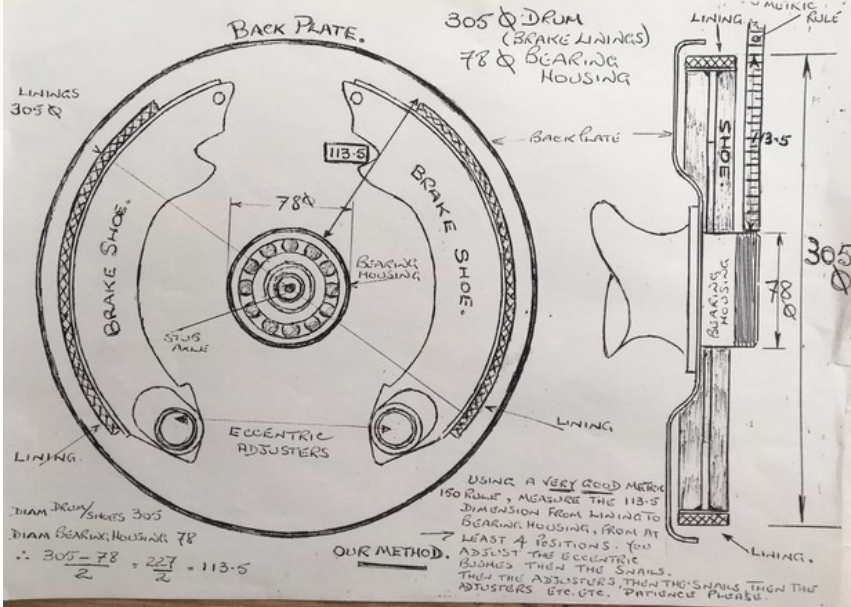 BACK PLATE.
305 Ø DRUM
(BRAKE LININGS)
78 Ø BEARING
HOUSING
LINING
METRIC
RULE
LININGS
305 Ø
BACK PLATE
113.5
SHOE.
113.5
BRAKE SHOE.
BRAKE SHOE.
78 Ø
BEARING
HOUSING
BEARING
HOUSING
78
Ø
305
Ø
STUB
AXLE
ECCENTRIC
ADJUSTERS
LINING
LINING.
DIAM DRUM/SHOES 305
DIAM BEARING HOUSING 78
∴ 305-78 / 2 = 227 / 2 = 113.5
OUR METHOD.
USING A VERY GOOD METRIC
150 RULE, MEASURE THE 113.5
DIMENSION FROM LINING TO
BEARING HOUSING, FROM AT
LEAST 4 POSITIONS. YOU
ADJUST THE ECCENTRIC
BUSHES THEN THE SNAILS.
THEN THE ADJUSTERS, THEN THE SNAILS, THEN THE
ADJUSTERS ETC. ETC. PATIENCE PLEASE.
LINING.